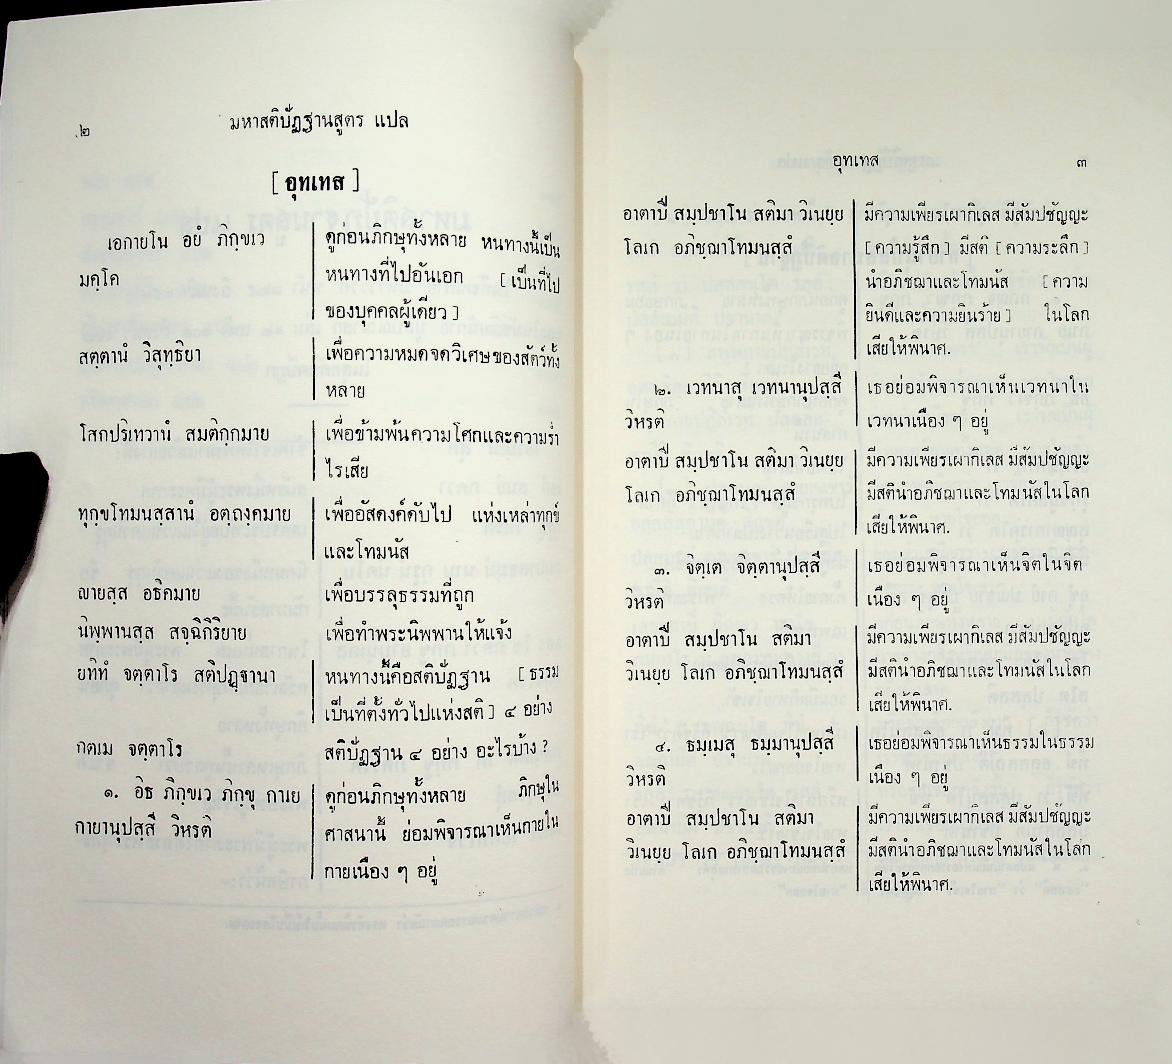 ๒
มหาสติปัฏฐานสูตร แปล
[ อุทเทส ]
เอกายโน อยํ ภิกฺขเว
มคฺโค
ดูก่อนภิกษุทั้งหลาย หนทางนี้เป็น
หนทางที่ไปอันเอก [ เป็นที่ไป
ของบุคคลผู้เดียว ]
สตฺตานํ วิสุทฺธิยา
เพื่อความหมดจดวิเศษของสัตว์ทั้ง
หลาย
โสกปริเทวานํ สมติกฺกมาย
เพื่อข้ามพ้นความโศกและความร่ำ
ไรเสีย
ทุกฺขโทมนสฺสานํ อตฺถงฺคมาย
เพื่ออัสดงค์ดับไป แห่งเหล่าทุกข์
และโทมนัส
ญายสฺส อธิคมาย
เพื่อบรรลุธรรมที่ถูก
นิพฺพานสฺส สจฺฉิกิริยาย
เพื่อทำพระนิพพานให้แจ้ง
ยทิทํ จตฺตาโร สติปฏฺฐานา
หนทางนี้คือสติปัฏฐาน [ ธรรม
เป็นที่ตั้งทั่วไปแห่งสติ ] ๔ อย่าง
กตเม จตฺตาโร
สติปัฏฐาน ๔ อย่าง อะไรบ้าง ?
๑. อิธ ภิกฺขเว ภิกฺขุ กาเย
กายานุปสฺสี วิหรติ
ดูก่อนภิกษุทั้งหลาย ภิกษุใน
ศาสนานี้ ย่อมพิจารณาเห็นกายใน
กายเนือง ๆ อยู่
อุทเทส
๓
อาตาปี สมฺปชาโน สติมา วิเนยฺย
โลเก อภิชฺฌาโทมนสฺสํ
มีความเพียรเผากิเลส มีสัมปชัญญะ
[ ความรู้สึก ] มีสติ [ ความระลึก ]
นำอภิชฌาและโทมนัส [ ความ
ยินดีและความยินร้าย ] ในโลก
เสียให้พินาศ.
๒. เวทนาสุ เวทนานุปสฺสี
วิหรติ
เธอย่อมพิจารณาเห็นเวทนาใน
เวทนาเนือง ๆ อยู่
อาตาปี สมฺปชาโน สติมา วิเนยฺย
โลเก อภิชฺฌาโทมนสฺสํ
มีความเพียรเผากิเลส มีสัมปชัญญะ
มีสตินำอภิชฌาและโทมนัสในโลก
เสียให้พินาศ.
๓. จิตฺเต จิตฺตานุปสฺสี
วิหรติ
เธอย่อมพิจารณาเห็นจิตในจิต
เนือง ๆ อยู่
อาตาปี สมฺปชาโน สติมา
วิเนยฺย โลเก อภิชฺฌาโทมนสฺสํ
มีความเพียรเผากิเลส มีสัมปชัญญะ
มีสตินำอภิชฌาและโทมนัสในโลก
เสียให้พินาศ.
๔. ธมฺเมสุ ธมฺมานุปสฺสี
วิหรติ
เธอย่อมพิจารณาเห็นธรรมในธรรม
เนือง ๆ อยู่
อาตาปี สมฺปชาโน สติมา
วิเนยฺย โลเก อภิชฺฌาโทมนสฺสํ
มีความเพียรเผากิเลส มีสัมปชัญญะ
มีสตินำอภิชฌาและโทมนัสในโลก
เสียให้พินาศ.